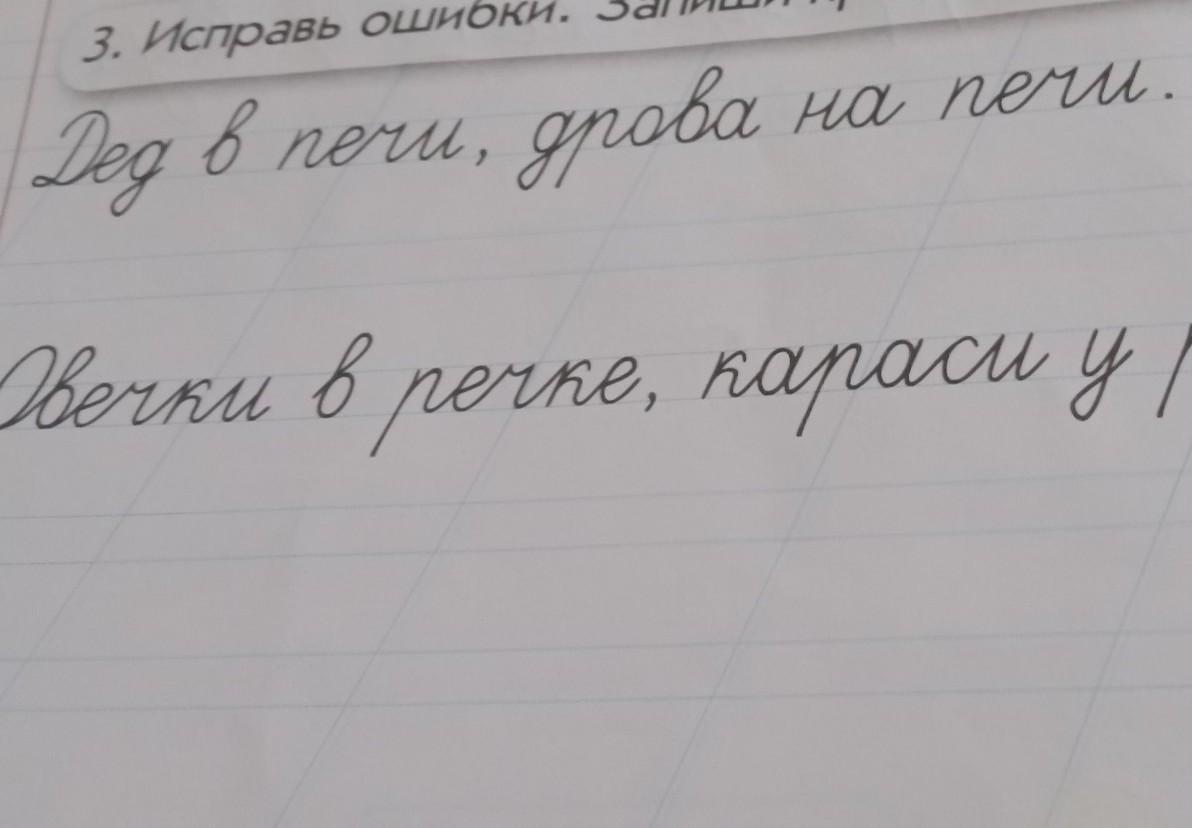 3. Исправь ошибки. Запиши
Дед в печи, дрова на печи.
Овечки в речке, караси у